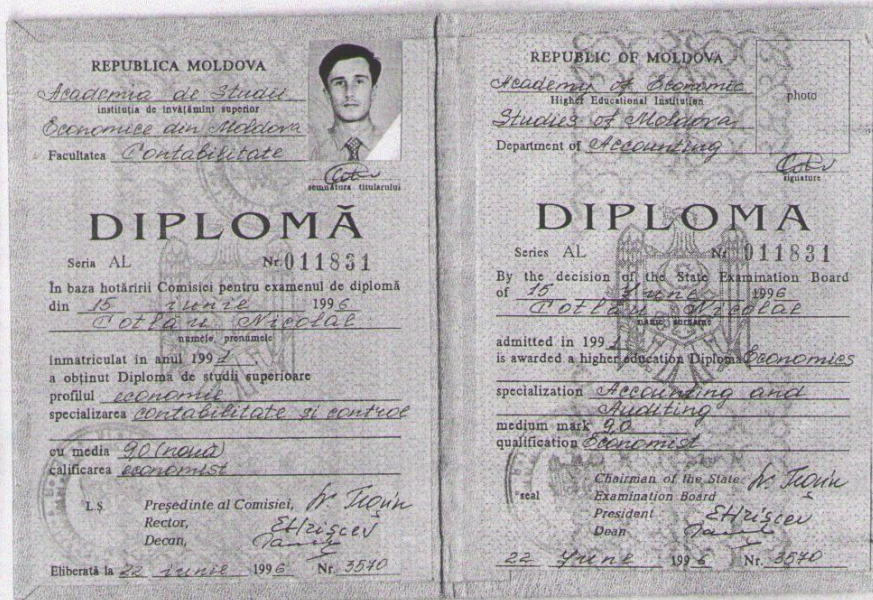 REPUBLICA MOLDOVA
Academia de Studii
instituția de învățămînt superior
Economice din Moldova
Facultatea Contabilitate
semnătura titularului
DIPLOMĂ
Seria AL Nr 011831
În baza hotărîrii Comisiei pentru examenul de diplomă
din 15 iunie 1996
Cotlău Nicolae
numele, prenumele
inmatriculat in anul 1991
a obținut Diploma de studii superioare
profilul economie
specializarea contabilitate și control
cu media 9,0 (nouă)
calificarea economist
L.Ș Președinte al Comisiei,
Rector,
Decan,
Eliberată la 22 iunie 1996 Nr. 3570
REPUBLIC OF MOLDOVA
Academy of Economic
Higher Educational Institution
Studies of Moldova
Department of Accounting
photo
signature
DIPLOMA
Series AL Nr 011831
By the decision of the State Examination Board
of 15 June 1996
Cotlău Nicolae
name, surname
admitted in 1991
is awarded a higher education Diploma Economics
specialization Accounting and
Auditing
medium mark 9,0
qualification Economist
seal
Chairman of the State
Examination Board
President
Dean
22 June 1996 Nr. 3570